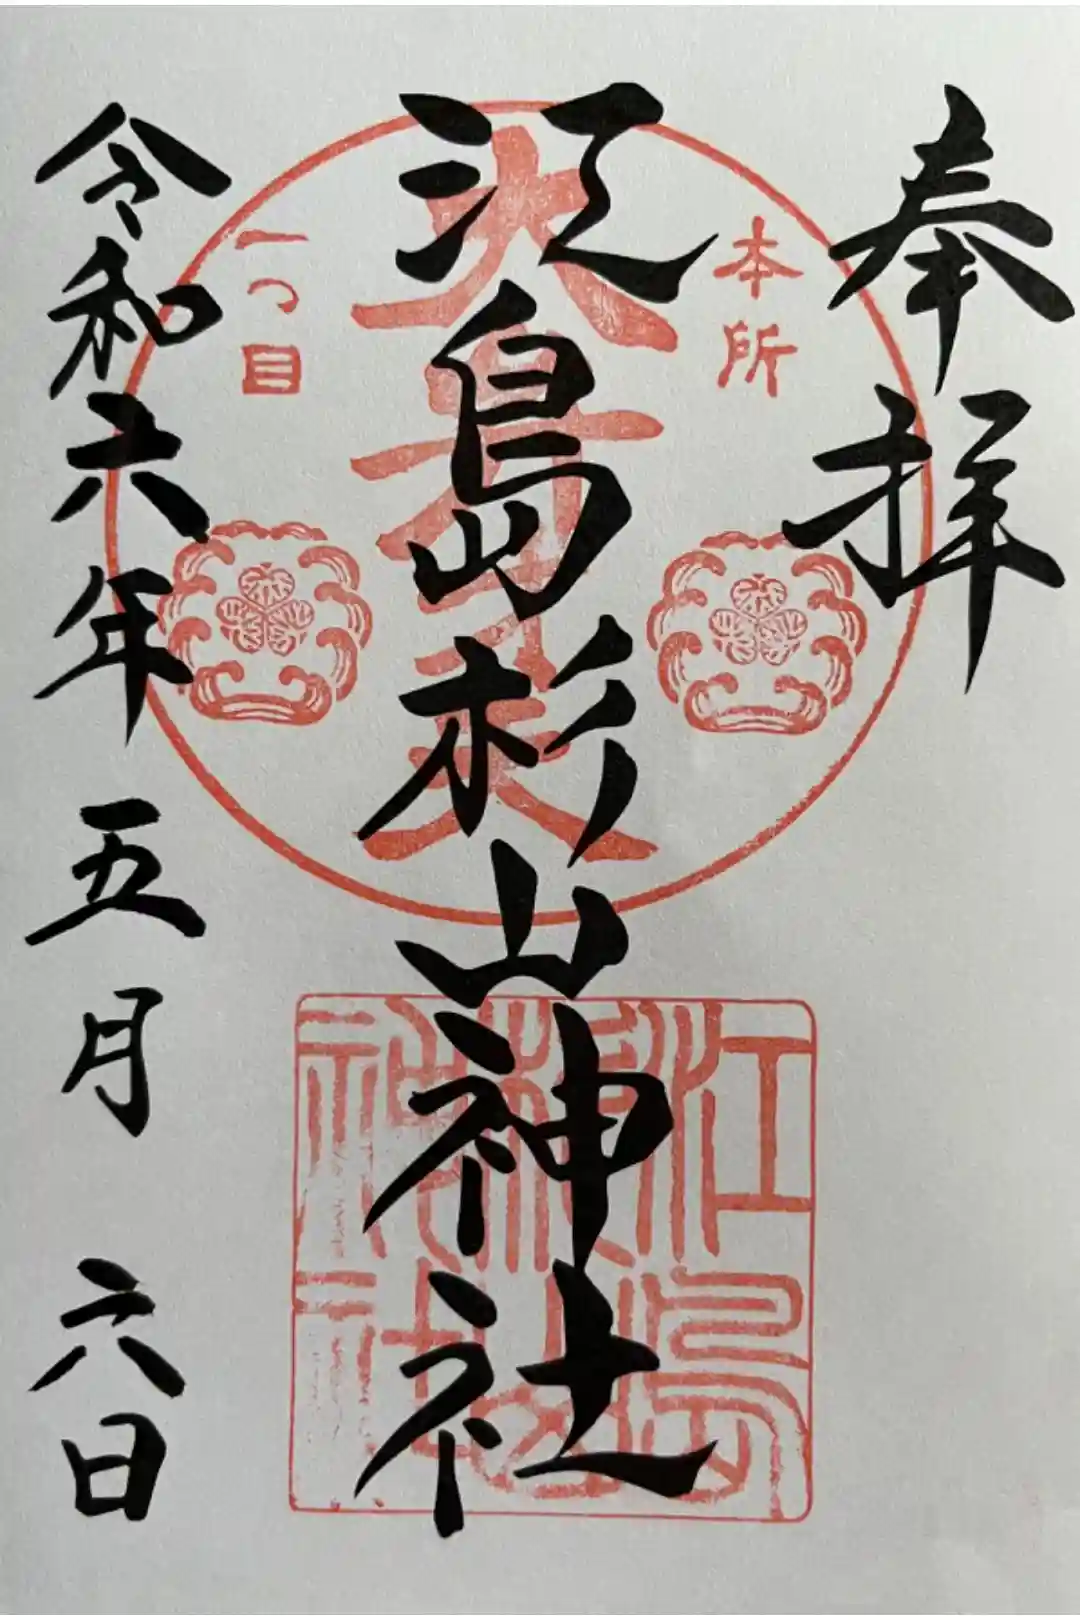 奉拝
本所
一つ目
大弁才天
江島杉山神社
江島杉山神社
令和六年五月六日